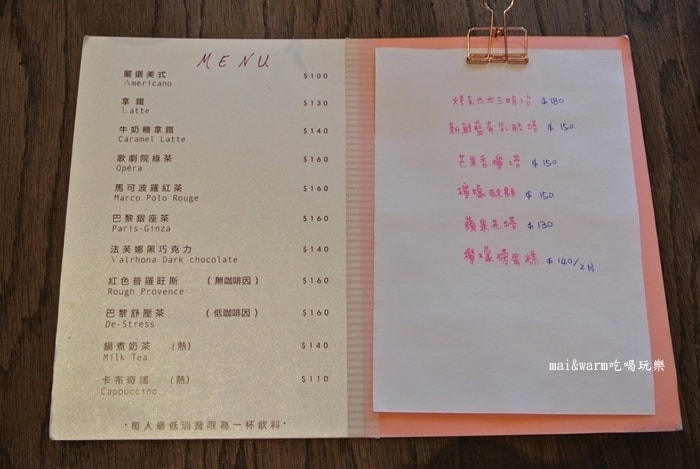 MENU
嚴選美式 $100
Americano
拿鐵 $130
Latte
牛奶糖拿鐵 $140
Caramel Latte
歌劇院綠茶 $160
Opéra
馬可波羅紅茶 $160
Marco Polo Rouge
巴黎銀座茶 $160
Paris-Ginza
法芙娜黑巧克力 $140
Valrhona Dark chocolate
紅色普羅旺斯 (無咖啡因) $160
Rough Provence
巴黎舒壓茶 (低咖啡因) $160
De-Stress
鍋煮奶茶 (熱) $140
Milk Tea
卡布奇諾 (熱) $110
Cappuccino
·每人最低消費限為一杯飲料·
三明治 $180
新鮮藍莓乳酪塔 $150
芒果香檸塔 $150
檸檬酥餅 $150
蘋果花塔 $130
檸檬磅蛋糕 $140/2片
mai&warm吃喝玩樂